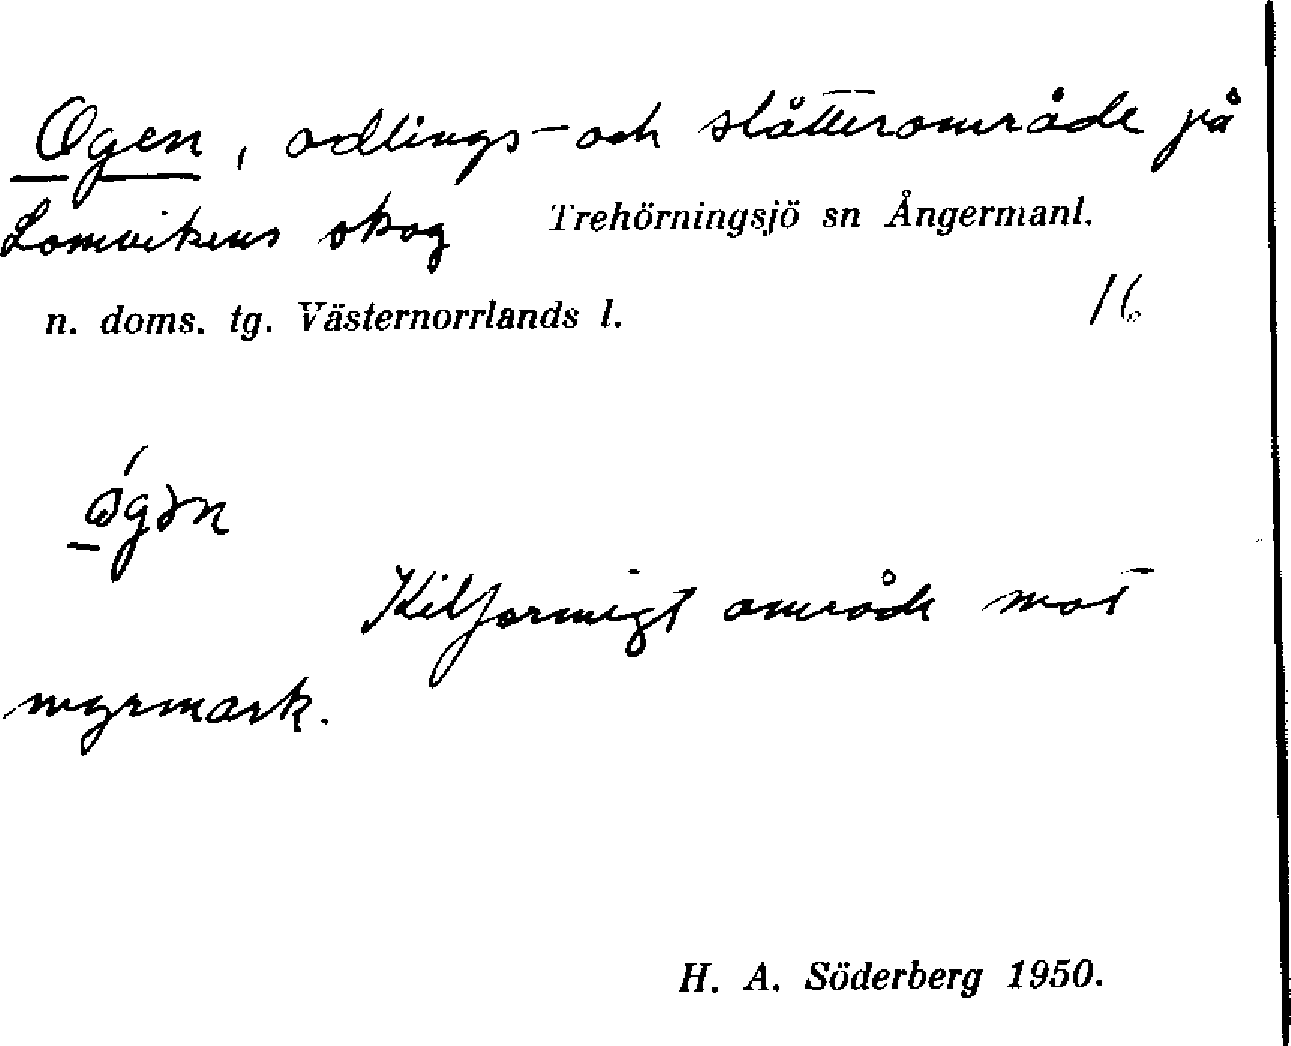 Ogen, odlings- och slåtterområde på
Lomvikens skog Trehörningsjö sn Ångermanl.
n. doms. tg. Västernorrlands l. 16
Kilformigt område mot
myrmark.
H. A. Söderberg 1950.